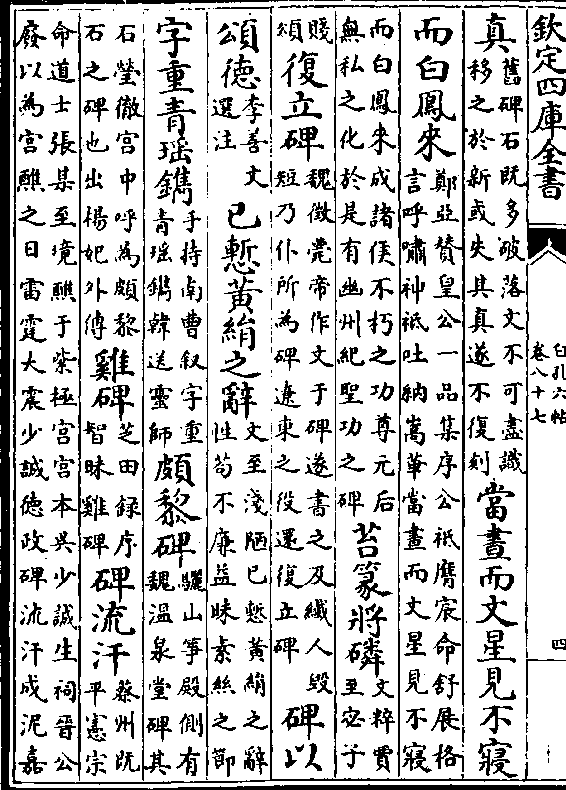 欽定四庫全書
白孔六帖
卷八十七
四
真舊碑石既多破落文不可盡識移之於新或失其真遂不復刻當晝而文星見不寢
而白鳳來鄭亞贊皇公一品集序公祇膺宸命舒展格言呼嘯神祇吐納嵩華當晝而文星見不寢
而白鳳來成諸侯不朽之功尊元后無私之化於是有幽州紀聖功之碑苔篆將磷文粹賈至宓子
賤頌復立碑魏徵薨帝作文于碑遂書之及纖人毀短乃仆所為碑遼東之役還復立碑碑以
頌德李善文選注已慙黃絹之辭文至淺陋已慙黃絹之辭性苟不廉益昧素絲之節
字重青瑤鐫手持南曹叙字重青瑤鐫韓送靈師頗黎碑驪山筝殿側有魏溫泉堂碑其
石瑩徹宮中呼為頗黎石之碑也出楊妃外傳雞碑芝田録序智昧雞碑碑流汗蔡州既平憲宗
命道士張某至境醮于紫極宮宮本吳少誠生祠晉公廢以為宮醮之日雷霆大震少誠德政碑流汗成泥嘉